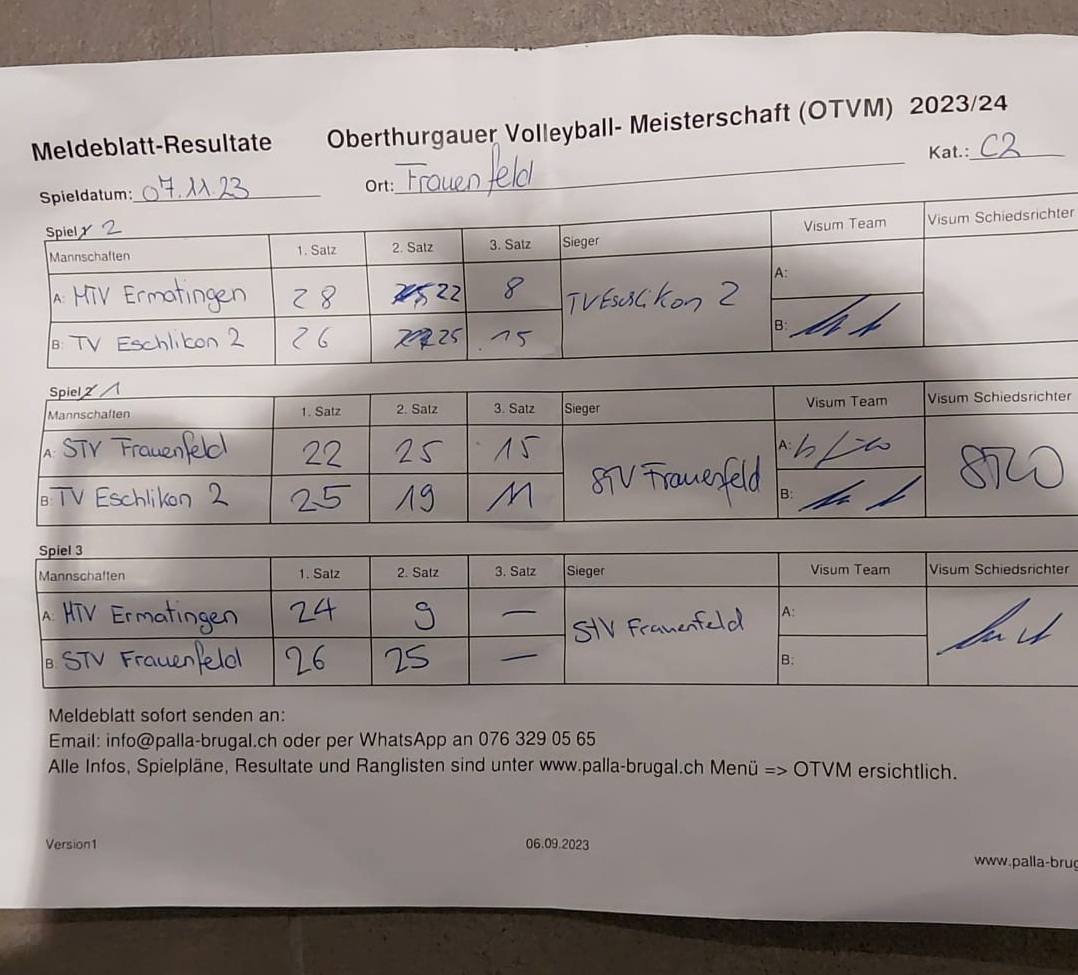 Meldeblatt-Resultate Oberthurgauer Volleyball- Meisterschaft (OTVM) 2023/24
Spieldatum: 07.11.23 Ort: Frauenfeld Kat.: C2
Spiel 2
Mannschaften 1. Satz 2. Satz 3. Satz Sieger Visum Team Visum Schiedsrichter
A: HTV Ermatingen 28 22 8 TV Eschlikon 2 A:
B: TV Eschlikon 2 26 25 15 B:
Spiel 1
Mannschaften 1. Satz 2. Satz 3. Satz Sieger Visum Team Visum Schiedsrichter
A: STV Frauenfeld 22 25 15 STV Frauenfeld A:
B: TV Eschlikon 2 25 19 11 B:
Spiel 3
Mannschaften 1. Satz 2. Satz 3. Satz Sieger Visum Team Visum Schiedsrichter
A: HTV Ermatingen 24 9 – STV Frauenfeld A:
B: STV Frauenfeld 26 25 – B:
Meldeblatt sofort senden an:
Email: info@palla-brugal.ch oder per WhatsApp an 076 329 05 65
Alle Infos, Spielpläne, Resultate und Ranglisten sind unter www.palla-brugal.ch Menü => OTVM ersichtlich.
Version1 06.09.2023 www.palla-brug